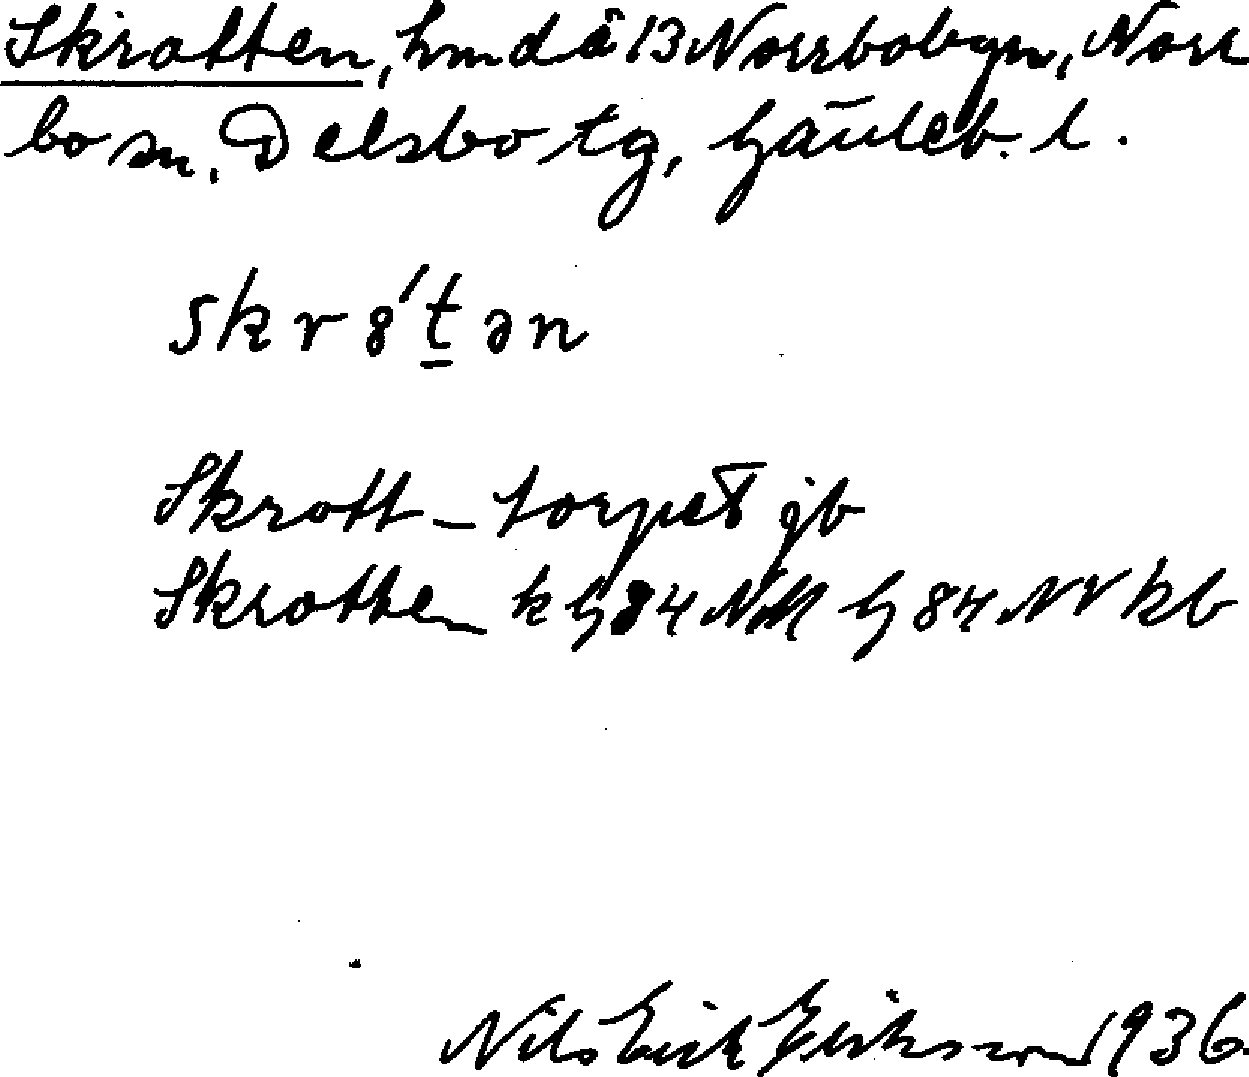 Skrotten, hmd å 13 Norrbobyn, Norr
bo sn. Delsbo tg, Gävleb. l.
skr8́t̲ən
Skrott-torpet jb
Skrotten k G84 NV kb
Nils Erik Eriksson 1936.